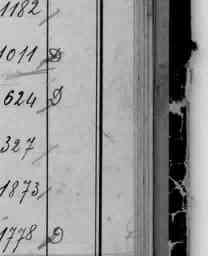 1182
1011 D
624 D
327
1873
1778 D